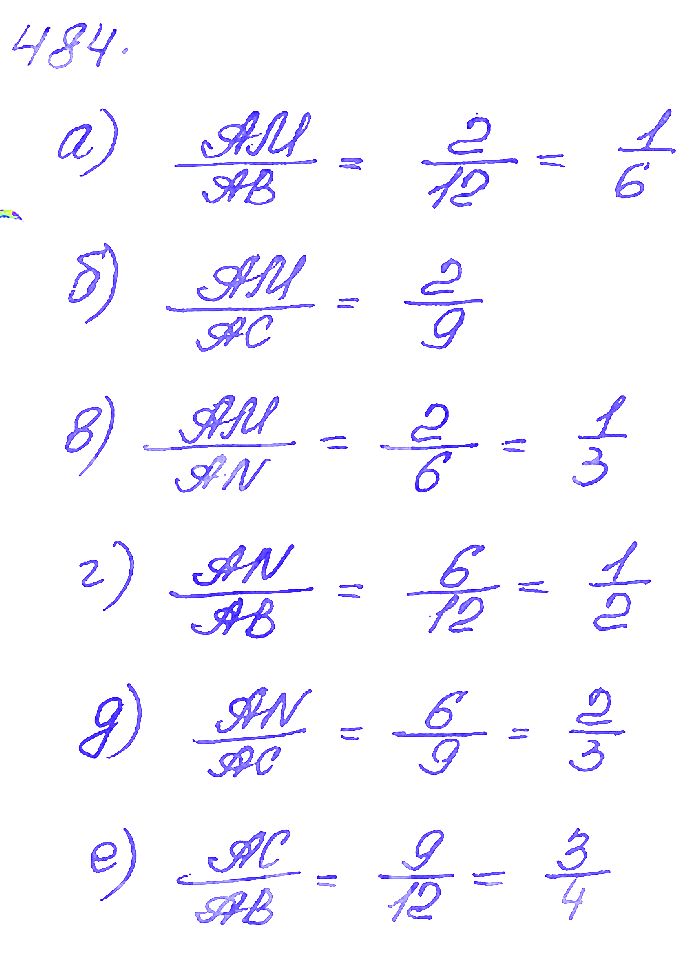 484.
а) AM/AB = 2/12 = 1/6
б) AM/AC = 2/9
в) AM/AN = 2/6 = 1/3
г) AN/AB = 6/12 = 1/2
д) AN/AC = 6/9 = 2/3
е) AC/AB = 9/12 = 3/4